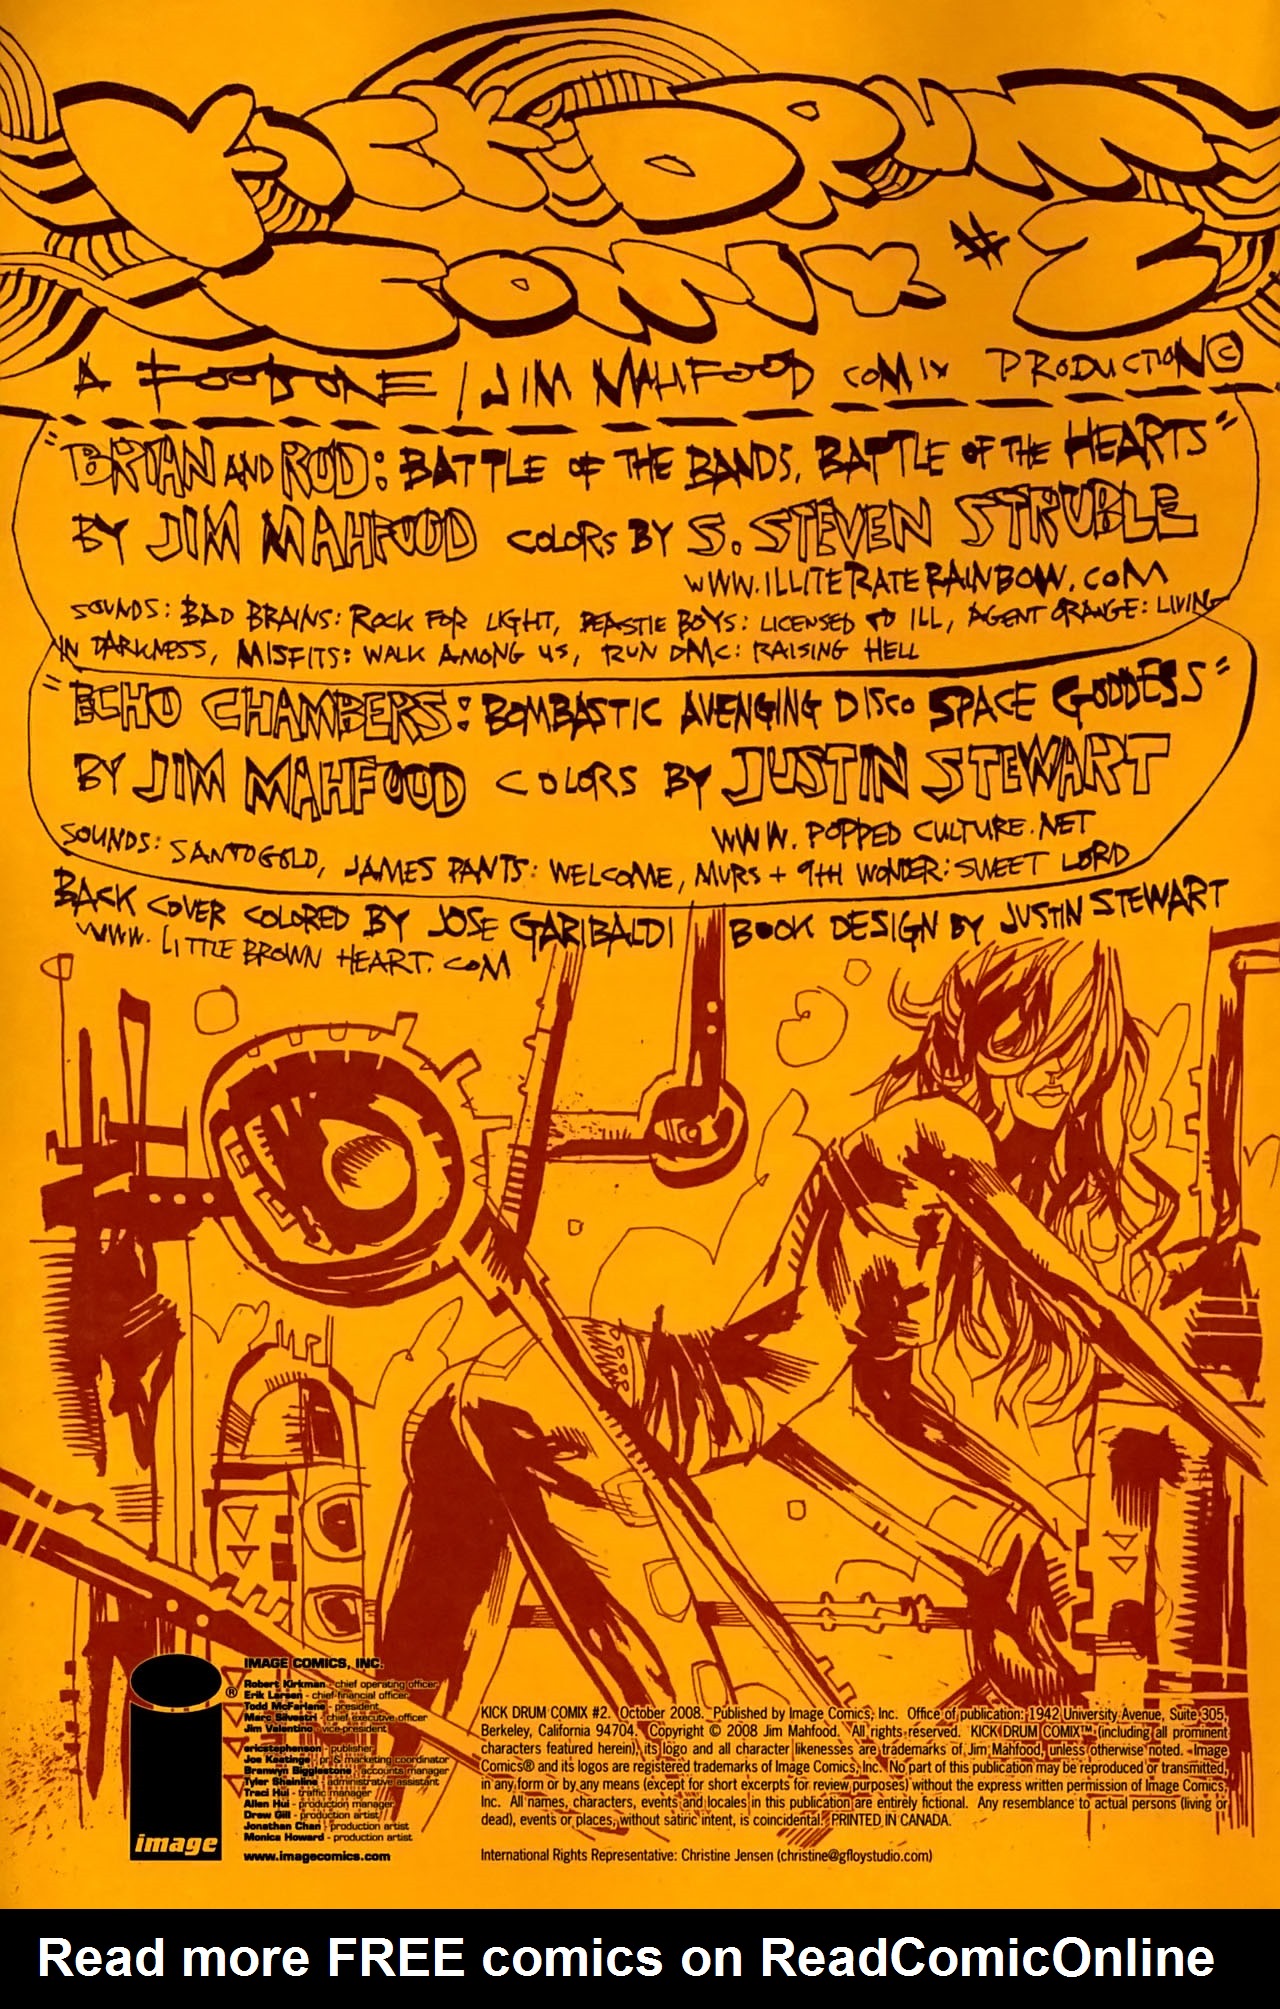 KICK DRUM
COMIX #2
A FOODONE / JIM MAHFOOD COMIX PRODUCTION ©
"BRIAN AND ROD: BATTLE OF THE BANDS, BATTLE OF THE HEARTS"
BY JIM MAHFOOD COLORS BY S. STEVEN STRUBLE
WWW.ILLITERATERAINBOW.COM
SOUNDS: BAD BRAINS: ROCK FOR LIGHT, BEASTIE BOYS: LICENSED TO ILL, AGENT ORANGE: LIVING
IN DARKNESS, MISFITS: WALK AMONG US, RUN DMC: RAISING HELL
"ECHO CHAMBERS: BOMBASTIC AVENGING DISCO SPACE GODDESS"
BY JIM MAHFOOD COLORS BY JUSTIN STEWART
WWW.POPPED CULTURE.NET
SOUNDS: SANTOGOLD, JAMES PANTS: WELCOME, MURS + 9TH WONDER: SWEET LORD
BACK COVER COLORED BY JOSE GARIBALDI BOOK DESIGN BY JUSTIN STEWART
WWW.LITTLE BROWN HEART.COM
IMAGE COMICS, INC.
Robert Kirkman - chief operating officer
Erik Larsen - chief financial officer
Todd McFarlane - president
Marc Silvestri - chief executive officer
Jim Valentino - vice-president
ericstephenson - publisher
Joe Keatinge - pr & marketing coordinator
Branwyn Bigglestone - accounts manager
Tyler Shainline - administrative assistant
Traci Hui - traffic manager
Allen Hui - production manager
Drew Gill - production artist
Jonathan Chan - production artist
Monica Howard - production artist
www.imagecomics.com
image ®
KICK DRUM COMIX #2. October 2008. Published by Image Comics, Inc. Office of publication: 1942 University Avenue, Suite 305,
Berkeley, California 94704. Copyright © 2008 Jim Mahfood. All rights reserved. KICK DRUM COMIX™ (including all prominent
characters featured herein), its logo and all character likenesses are trademarks of Jim Mahfood, unless otherwise noted. Image
Comics® and its logos are registered trademarks of Image Comics, Inc. No part of this publication may be reproduced or transmitted,
in any form or by any means (except for short excerpts for review purposes) without the express written permission of Image Comics,
Inc. All names, characters, events and locales in this publication are entirely fictional. Any resemblance to actual persons (living or
dead), events or places, without satiric intent, is coincidental. PRINTED IN CANADA.
International Rights Representative: Christine Jensen (christine@gfloystudio.com)
Read more FREE comics on ReadComicOnline